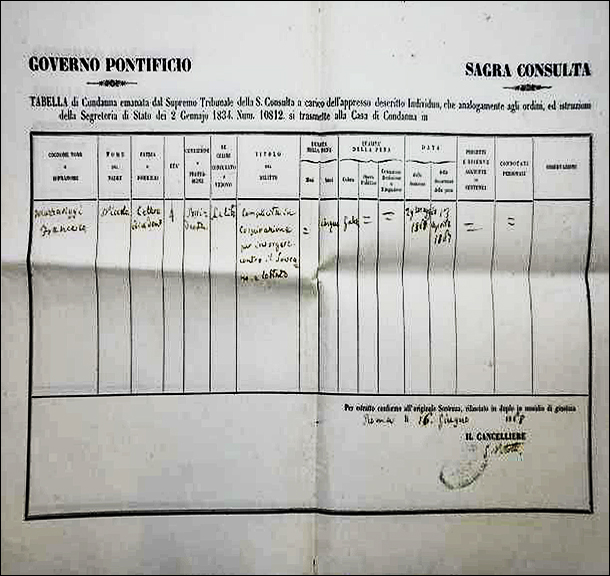 GOVERNO PONTIFICIO
SAGRA CONSULTA
TABELLA di Condanna emanata dal Supremo Tribunale della S. Consulta a carico dell'appresso descritto Individuo, che analogamente agli ordini, ed istruzioni
della Segreteria di Stato dei 2 Gennajo 1834. Num. 10812. si trasmette alla Casa di Condanna in
COGNOME NOME
E
SOPRANOME
NOME
DEL
PADRE
PATRIA
E
DOMICILIO
ETA'
CONDIZIONE
E
PROFES-
SIONE
SE
CELIBE
CONIUGATO
O
VEDOVO
TITOLO
DEL
DELITTO
DURATA
DELLA PENA
Mesi
Anni
QUALITÀ
DELLA PENA
Galera
Opera
Pubblica
DATA
della
Sentenza
della
decorrenza
della pena
PROGETTI
E RISERVE
AGGIUNTE
IN
SENTENZA
CONNOTATI
PERSONALI
OSSERVAZIONI
Francesco
Nicola
Possi-
dente
Celibe
Complicità in
Conspirazione
per insorgere
contro il Sovra-
no e lo Stato
=
cinque
Galera
=
=
29 maggio
1868
17
agosto
1867
=
=
Per estratto conforme all'originale Sentenza, rilasciato in duplo in sussidio di giustizia
Roma li 16 Giugno 1868
IL CANCELLIERE